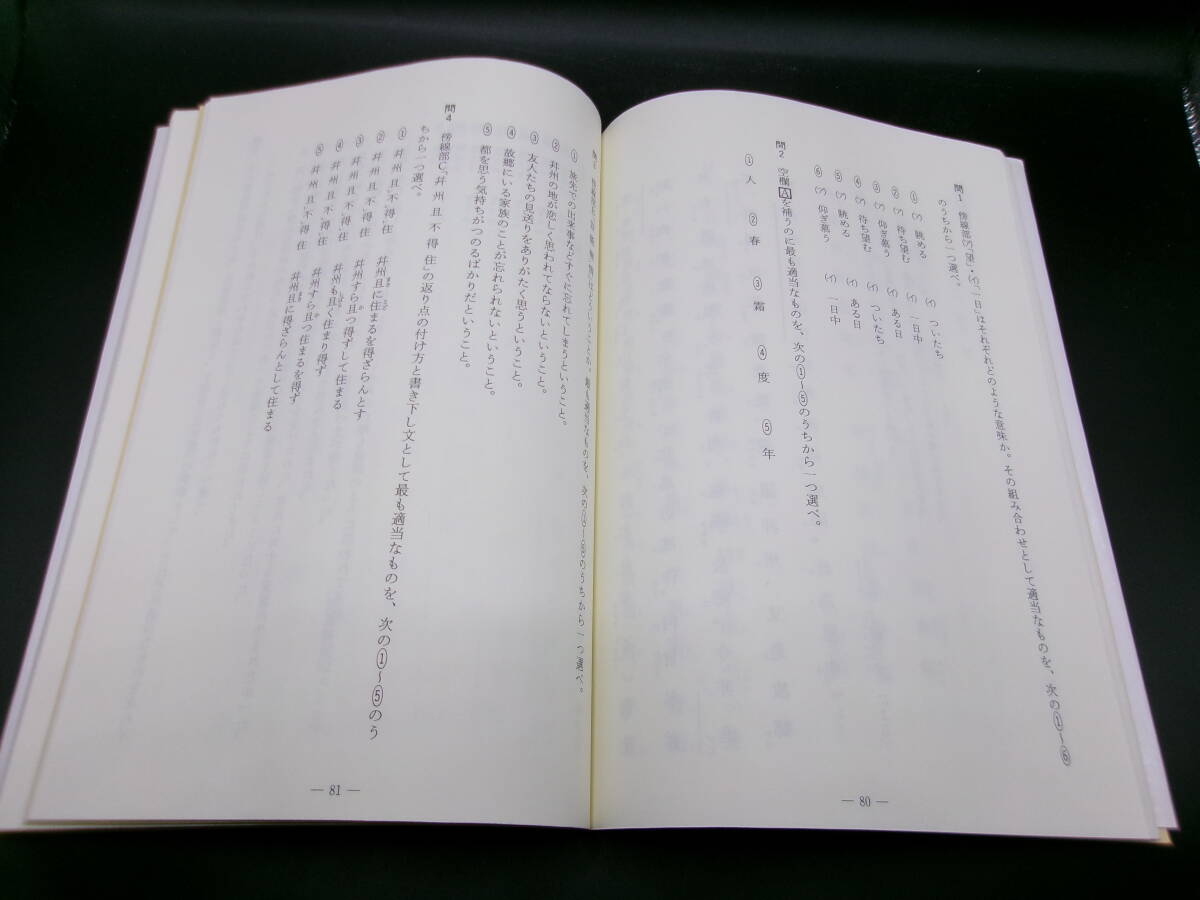 問1 傍線部(ア)「望」・(イ)「一日」はそれぞれどのような意味か。その組み合わせとして適当なものを、次の①～⑥
のうちから一つ選べ。
① (ア) 眺める (イ) ついたち
② (ア) 待ち望む (イ) 一日中
③ (ア) 仰ぎ慕う (イ) ある日
④ (ア) 待ち望む (イ) ついたち
⑤ (ア) 眺める (イ) ある日
⑥ (ア) 仰ぎ慕う (イ) 一日中
問2 空欄Aを補うのに最も適当なものを、次の①～⑤のうちから一つ選べ。
① 人 ② 春 ③ 霜 ④ 度 ⑤ 年
― 80 ―
はどういうことか。最も適当なものを、次の①～⑤のうちから一つ選べ。
① 旅先での出来事などすぐに忘れてしまうということ。
② 幷州の地が恋しく思われてならないということ。
③ 友人たちの見送りをありがたく思うということ。
④ 故郷にいる家族のことが忘れられないということ。
⑤ 都を思う気持ちがつのるばかりだということ。
問4 傍線部C「幷 州 且 不 得 住」の返り点の付け方と書き下し文として最も適当なものを、次の①～⑤のう
ちから一つ選べ。
① 幷 州 且 不 得 住 幷州且に住まるを得ざらんとす
② 幷 州 且 不 得 住 幷州すら且つ得ずして住まる
③ 幷 州 且 不 得 住 幷州も且く住まり得ず
④ 幷 州 且 不 得 住 幷州すら且つ住まるを得ず
⑤ 幷 州 且 不 得 住 幷州且に得ざらんとして住まる
― 81 ―